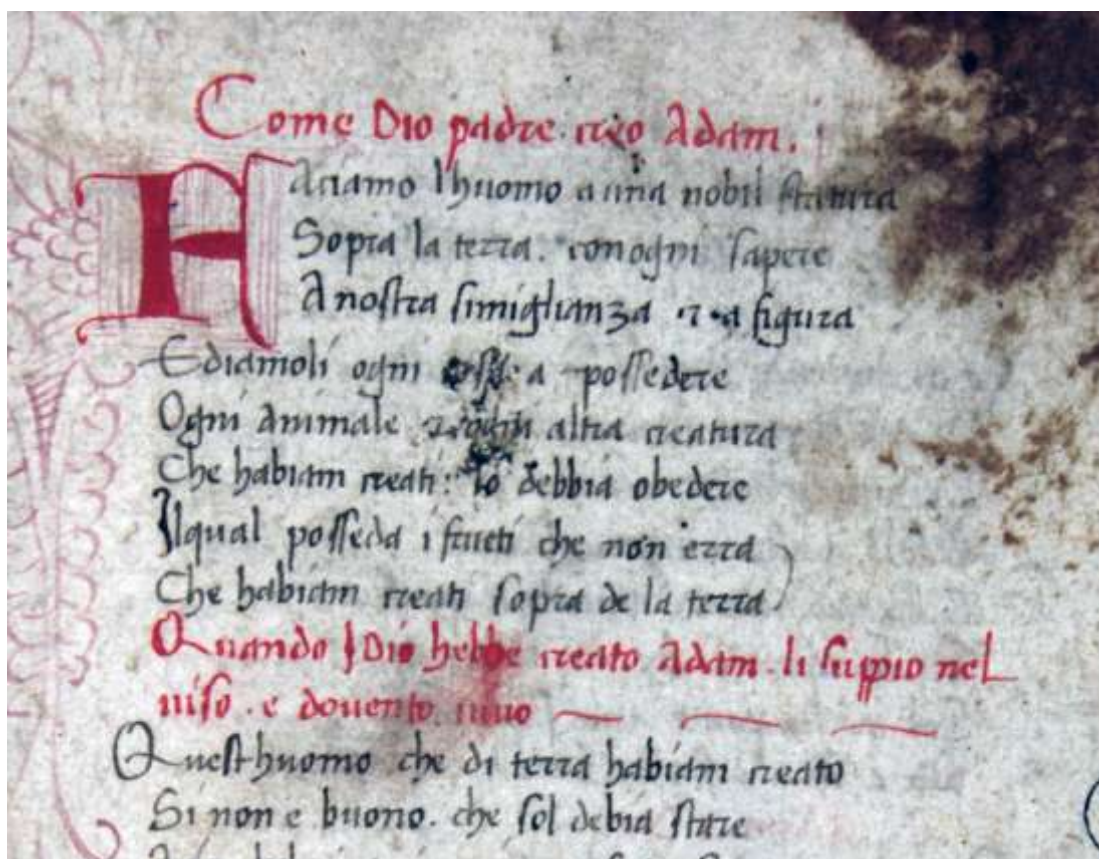 Come Dio padre creo Adam.
Faciamo lhuomo a una nobil statura
Sopra la terra. con ogni sapere
A nostra simiglianza et a figura
E diamoli ogni a possedere
Ogni animale et ogni altra creatura
Che habiam creati: lo debbia obedere
Ilqual posseda i frueti che non erra
Che habiam creati sopra de la terra
Quando J Dio hebbe creato Adam. li suppio nel
viso. e dovento vivo
Questhuomo che di terra habiam creato
Si non e buono. che sol debia stare